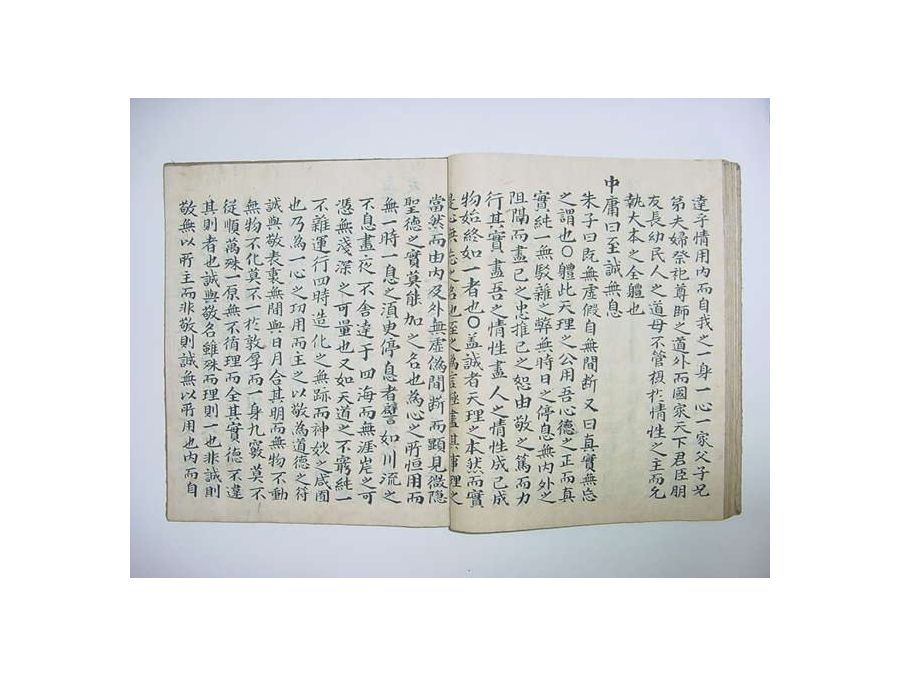 達乎情用內而自我之一身一心一家父子兄
弟夫婦祭祀尊師之道外而國家天下君臣朋
友長幼民人之道毋不管攝於情性之主而允
執大本之全軆也
中庸曰至誠無息
朱子曰旣無虛假自無間斷又曰真實無忘
之謂也○軆此天理之公用吾心德之正而真
實純一無駁雜之弊無時日之停息無內外之
阻隔而盡己之忠推己之恕由敬之篤而力
行其實盡吾之情性盡人之情性成己成
物始終如一者也○盖誠者天理之本然而實
之名也至之為言極盡其事理之
當然而由內及外無虛偽間斷而顕見微隱
聖德之實莫能加之名也為心之所恒用而
無一時一息之湏臾停息者譬如川流之
不息晝夜不舎達于四海而無涯岸之可
憑無淺深之可量也又如天道之不窮純一
不雜運行四時造化之無跡而神妙之咸囿
也乃為一心之功用而主之以敬為道德之符
誠與敬表裏無間與日月合其明而無物不動
無物不化莫不一於敦厚而一身九竅莫不
從順萬殊一原無不循理而全其實德不違
其則者也誠與敬名雖殊而理則一也非誠則
敬無以所主而非敬則誠無以所用也內而自